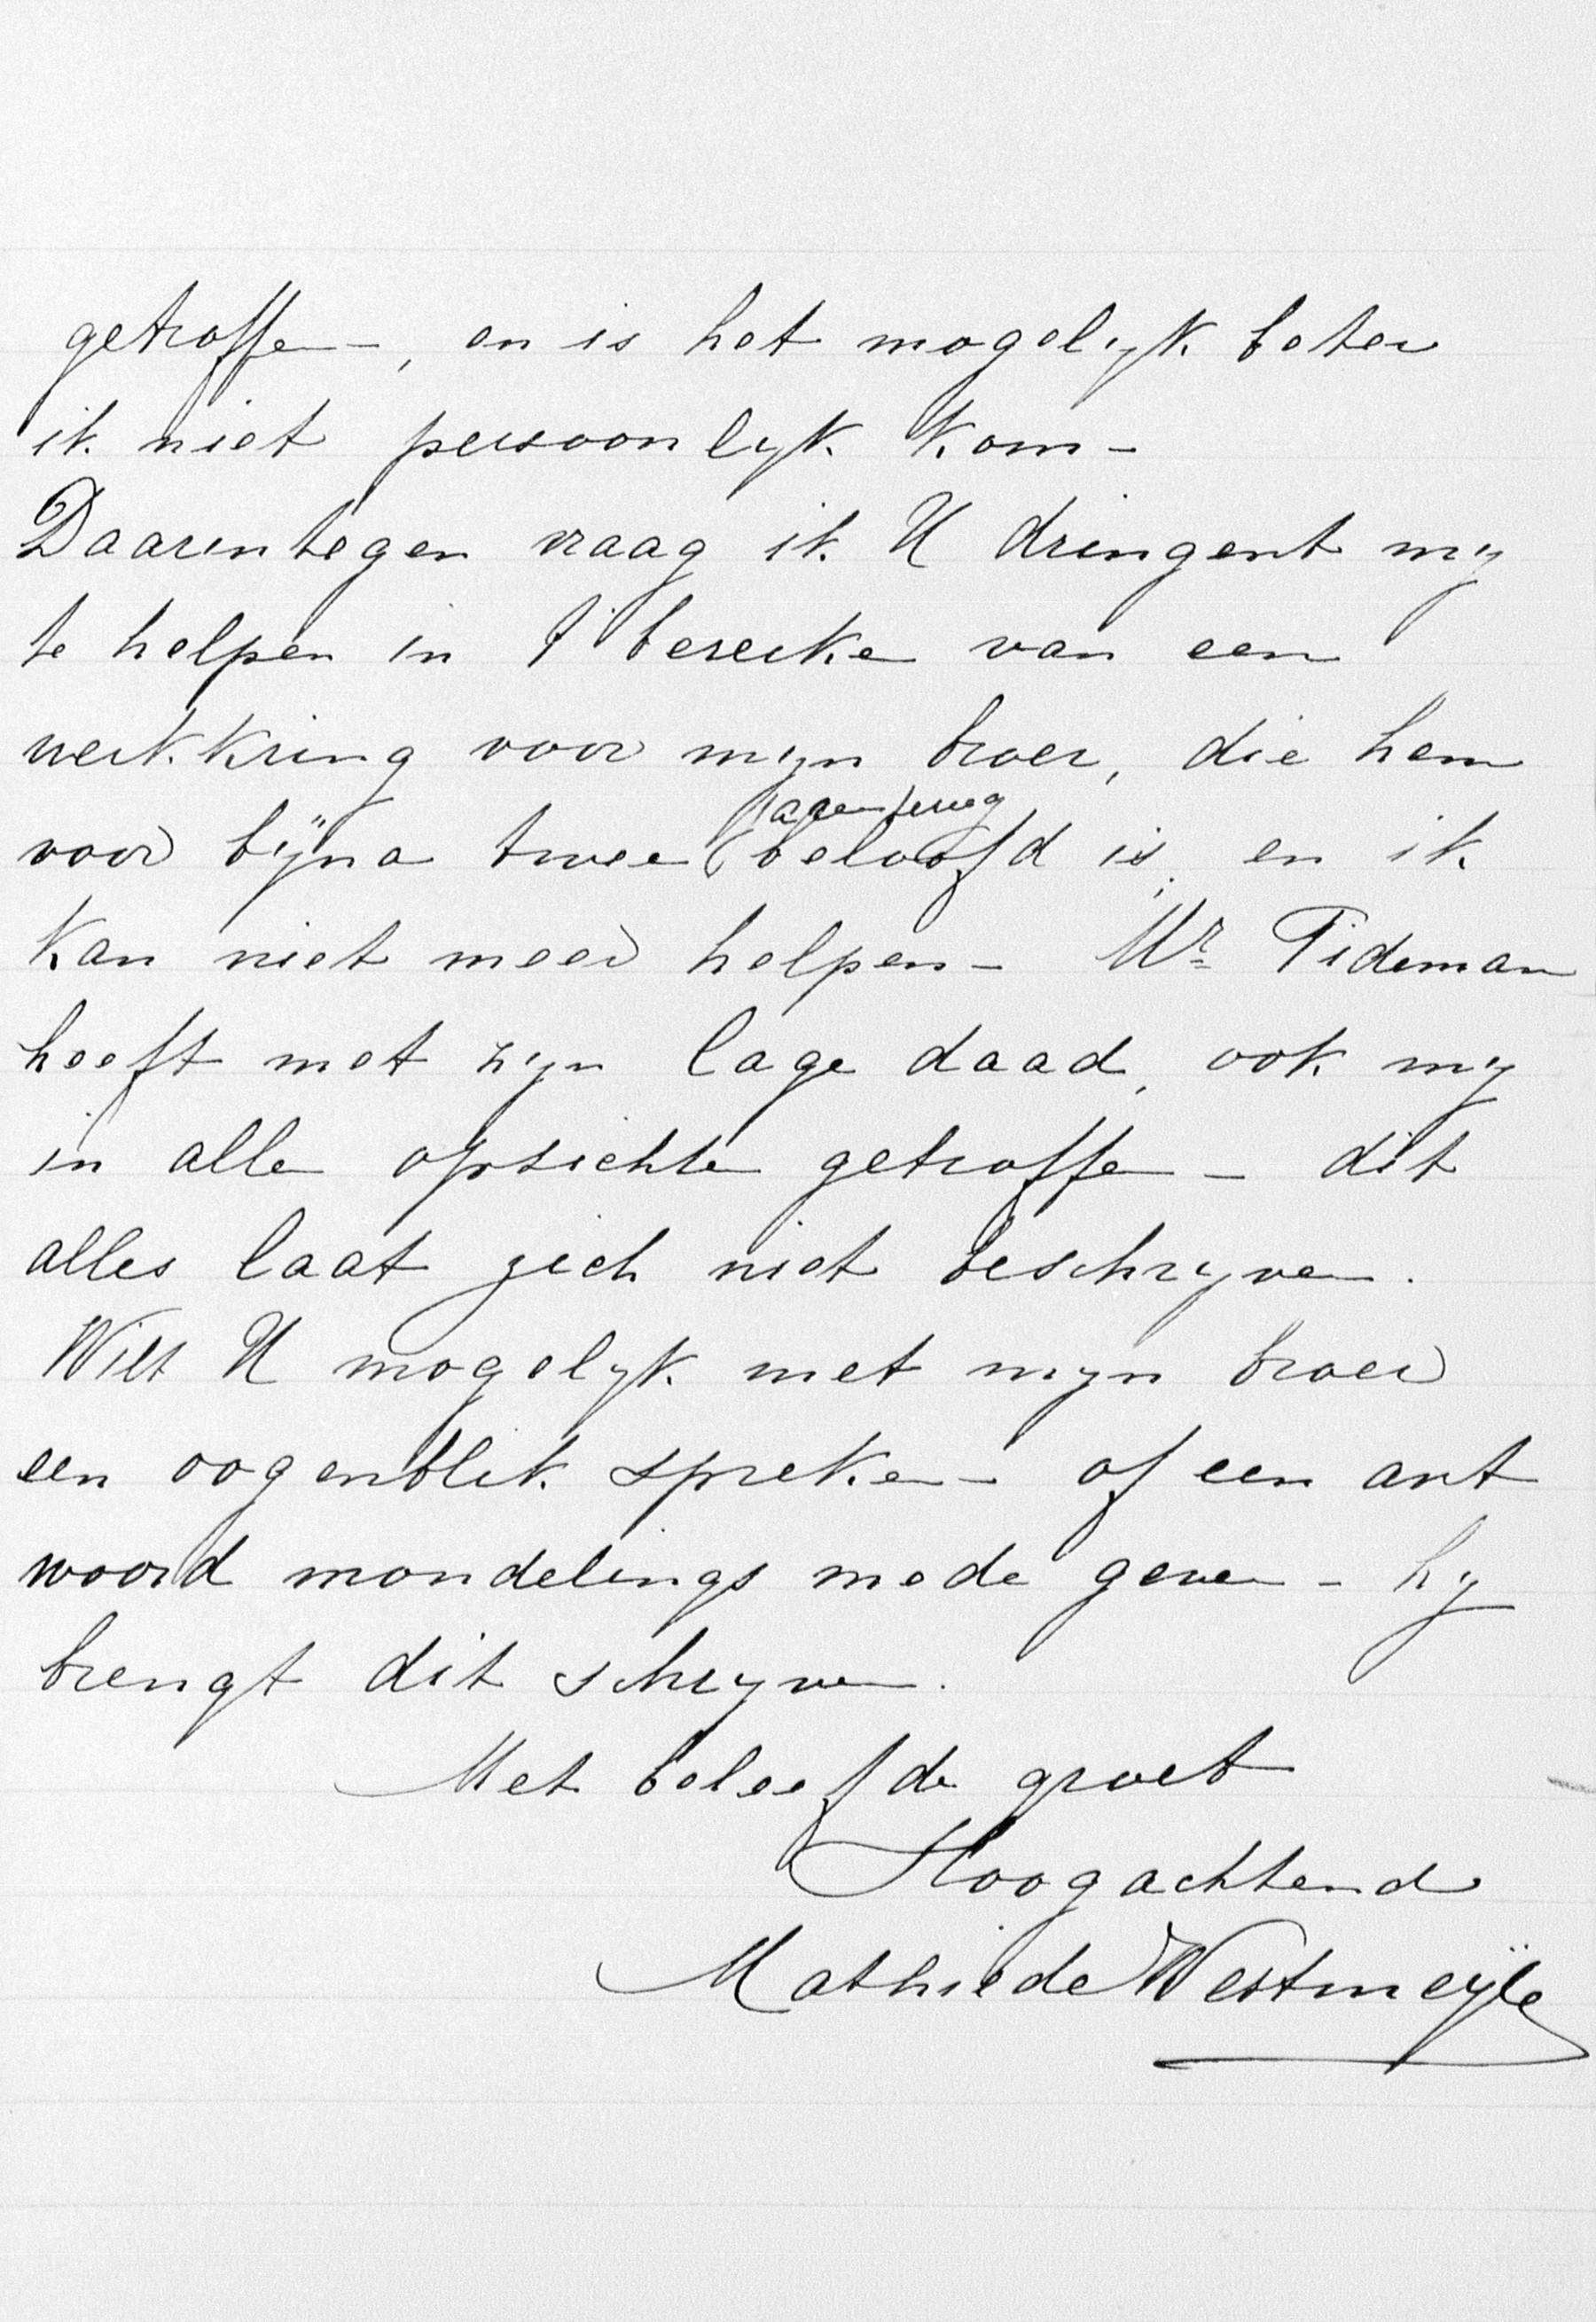 getroffen, en is het mogelijk beter
ik niet persoonlijk kom -
Daarintegen vraag ik U dringent mij
te helpen in 't bereike van een
werkkring voor mijn broer, die hem
jaren terug
voor bijna twee beloofd is, en ik
kan niet meer helpen - Mr Tideman
heeft met zijn lage daad, ook mij
in alle opsichte getroffe - dit
alles laat zich niet beschrijven.
Wilt U mogelijk met mijn broer
een oogenblik spreken - of een ant
woord mondelings mede geven - hij
brengt dit schrijven.
Met beleefde groet
Hoogachtend